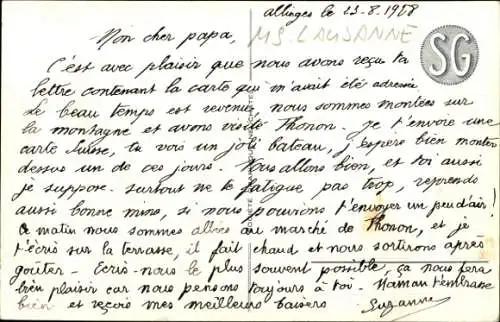 allinges le 23-8.1958
Mon cher papa,
MS LAUSANNE
SG
C'est avec plaisir que nous avons reçu ta
lettre contenant la carte qui m'avait été adressée
Le beau temps est revenu, nous sommes montées sur
la montagne et avons visité Thonon. Je t'envoie une
carte Suisse, tu vois un joli bateau, j'espère bien monter
dessus un de ces jours. Nous allons bien, et toi aussi
je suppose. surtout ne te fatigue pas trop, reprends
aussi bonne mine, si nous pouvions t'envoyer un peu d'air!
Ce matin nous sommes allées au marché de Thonon, et je
t'écris sur la terrasse, il fait chaud et nous sortirons après
goûter - Ecris-nous le plus souvent possible, ça nous fera
bien plaisir car nous pensons toujours à toi. Maman t'embrasse
bien et reçois mes meilleurs baisers
Suzanne